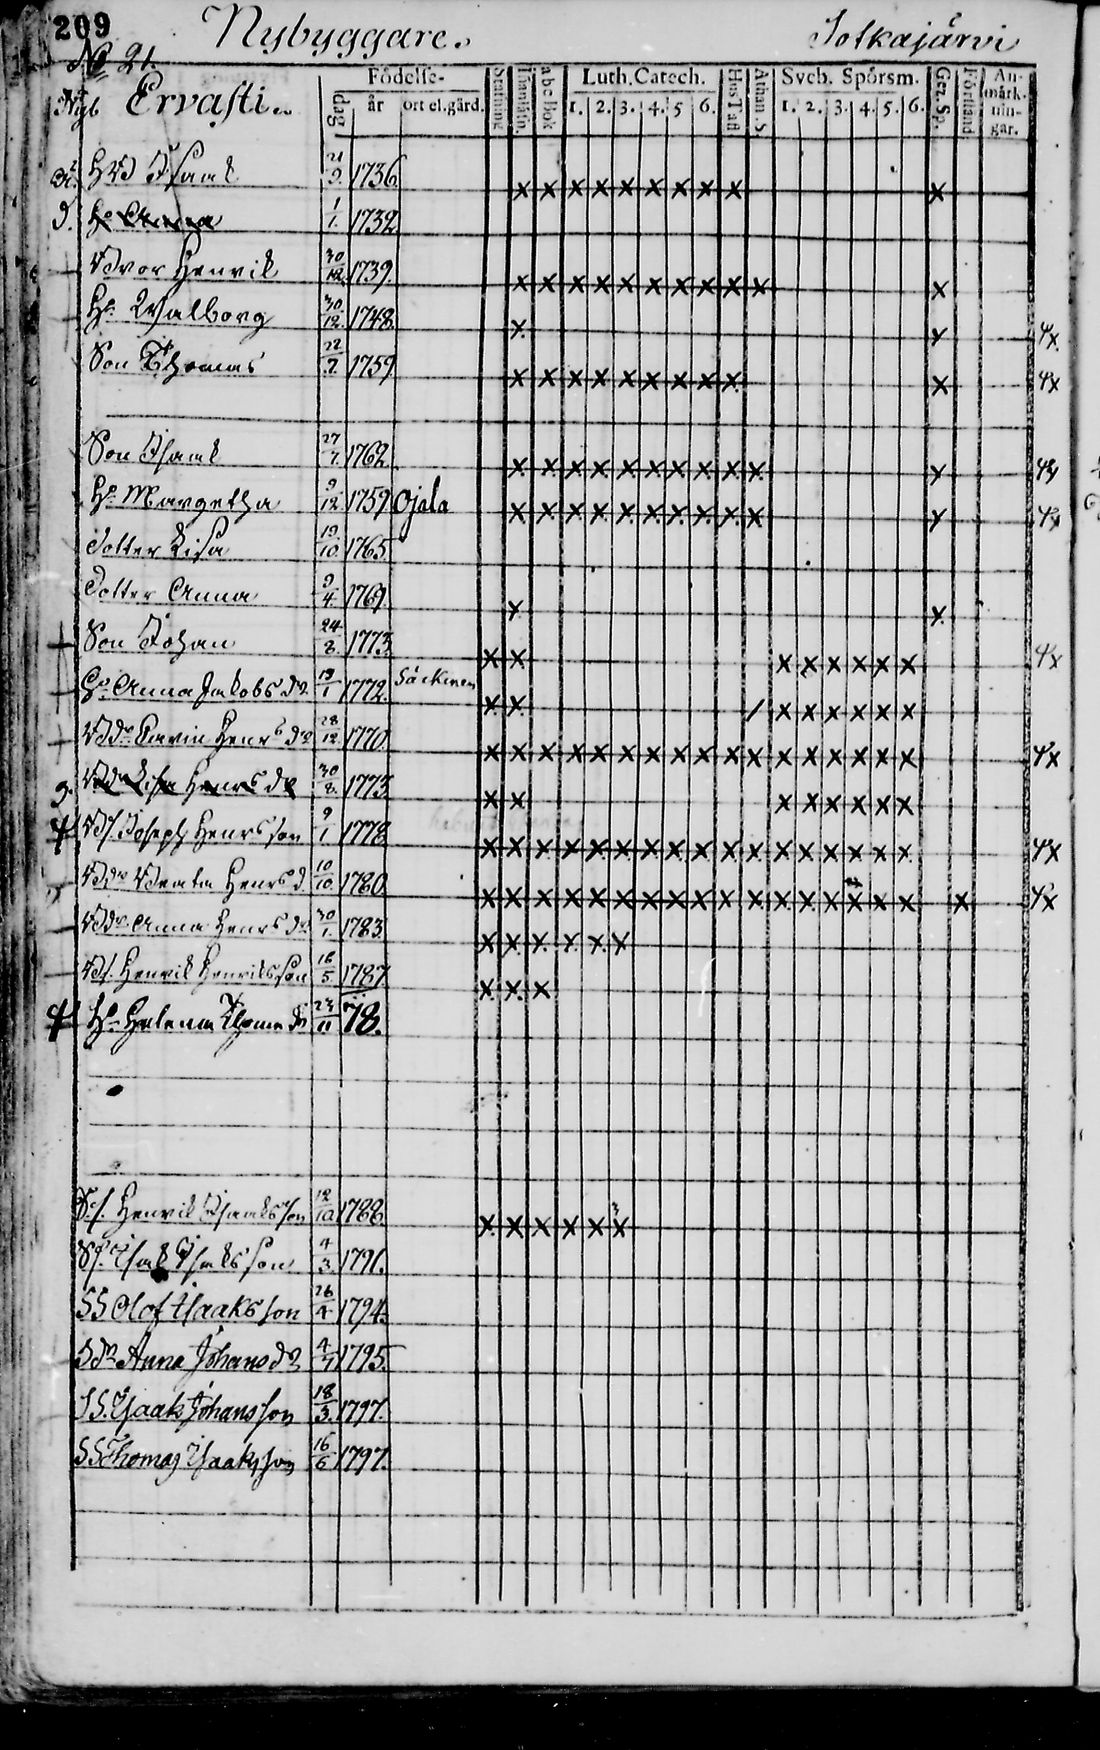 209 Nybyggare. Jolkajärvi
No 21.
Nyb Ervasti.
Födelse-
dag år ort el. gård.
Stafning Innanläsn. abc Bok Luth. Catech. 1. 2. 3. 4. 5 6. Hus Tafl Athan. S. Sveb. Spörsm. 1. 2. 3. 4. 5. 6. Gez. Sp. Förstånd An-märk-nin-gar.
Isaak 21/9 1736 x x x x x x x x x x
d. Ho Anna 1/1. 1732
Henrik 30/12 1739. x x x x x x x x x x x
Ho Walborg 30/12 1748 x x 4x
Son Thomas 22/7. 1759 x x x x x x x x x x 4x
Son Isaak 27/7. 1762 x x x x x x x x x x x
Ho Margetha 9/12 1759 Ojala x x x x x x x x x x x 4x
Dotter Lisa 19/10 1765
Dotter Anna 9/4 1769. x x
Son Johan 24/8. 1773 x x x x x x x x 4x
Ho Anna Jakobs dr 19/1 1772. Säckinen x x / x x x x x x
Carin Henrs dr 28/12 1770 x x x x x x x x x x x x x x x x x 4x
Lisa Henrs dr 30/8. 1773 x x x x x x x x
Joseph Henrsson 9/1 1778 x x x x x x x x x x x x x x x x x 4x
Beata Henrs d. 10/10. 1780 x x x x x x x x x x x x x x x x x x 4x
Anna Henrs dr 30/1. 1783 x x x x x x
Henrik Henriksson 16/5 1787. x x x
Ho Helena Thoma dr 23/11 78.
Henrik Isaksson 12/10 1788 x x x x x x
Isak Isaksson 4/3. 1791.
SS Olof Isaaksson 26/4 1794.
S dr Anna Johans dr 4/7 1795.
SS. Isaak Johansson 18/3. 1797.
SS Thomas Isaaksson 16/6 1797.